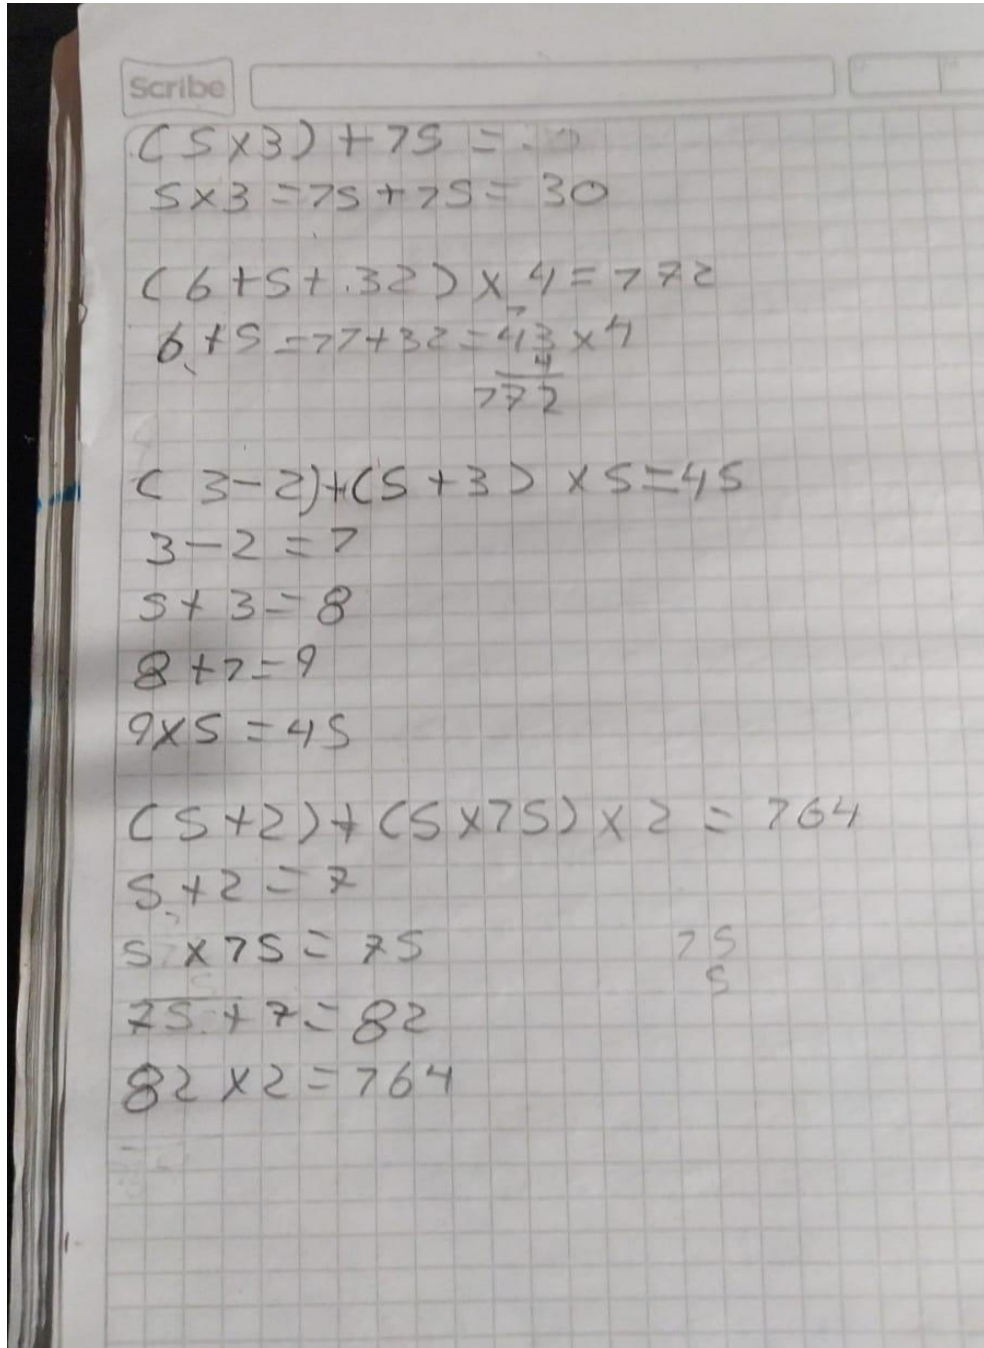 Scribe
(5×3)+15=
5×3=15+15=30
(6+5+32)×4=172
1
6+5=11+32=43×4
4
172
(3-2)+(5+3)×5=45
3-2=1
5+3=8
8+1=9
9×5=45
(5+2)+(5×15)×2=164
5+2=7
5×15=75
15
5
75+7=82
82×2=164